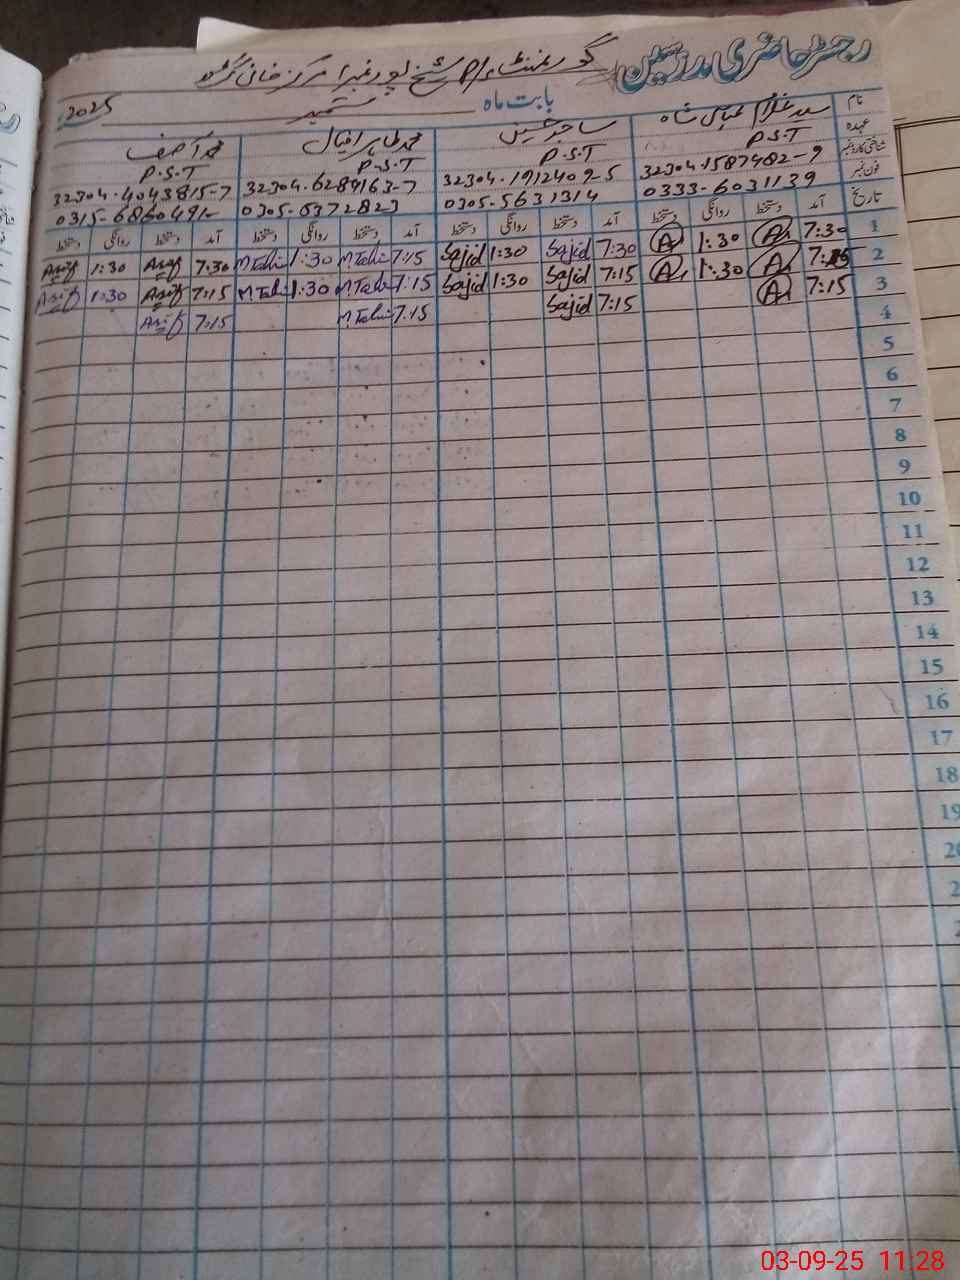 رجسٹر حاضری مدرسین گورنمنٹ P/S شیخ پور نمبر 1 مرکز خان گڑھ
بابت ماہ ستمبر 2025ء
نام سید غلام عباس شاہ ساجد حسین محمد طاہر اقبال محمد آصف
عہدہ P.S.T P.S.T P.S.T P.S.T
شناختی کارڈ نمبر 32304-1587482-9 32304-1912409-5 32304-6289163-7 32304-4043815-7
فون نمبر 0333-6031139 0305-5631314 0305-6372823 0315-6860491
تاریخ آمد دستخط روانگی دستخط آمد دستخط روانگی دستخط آمد دستخط روانگی دستخط آمد دستخط روانگی دستخط
1 7:30 A 1:30 A 7:30 Sajid 1:30 Sajid 7:15 M Tahir 1:30 M Tahir 7:30 Asif 1:30 Asif
2 7:15 A 1:30 A 7:15 Sajid 1:30 Sajid 7:15 M Tahir 1:30 M Tahir 7:15 Asif 1:30 Asif
3 7:15 A 7:15 Sajid 7:15 M Tahir 7:15 Asif
4
5
6
7
8
9
10
11
12
13
14
15
16
17
18
19
20
2
2
03-09-25 11:28